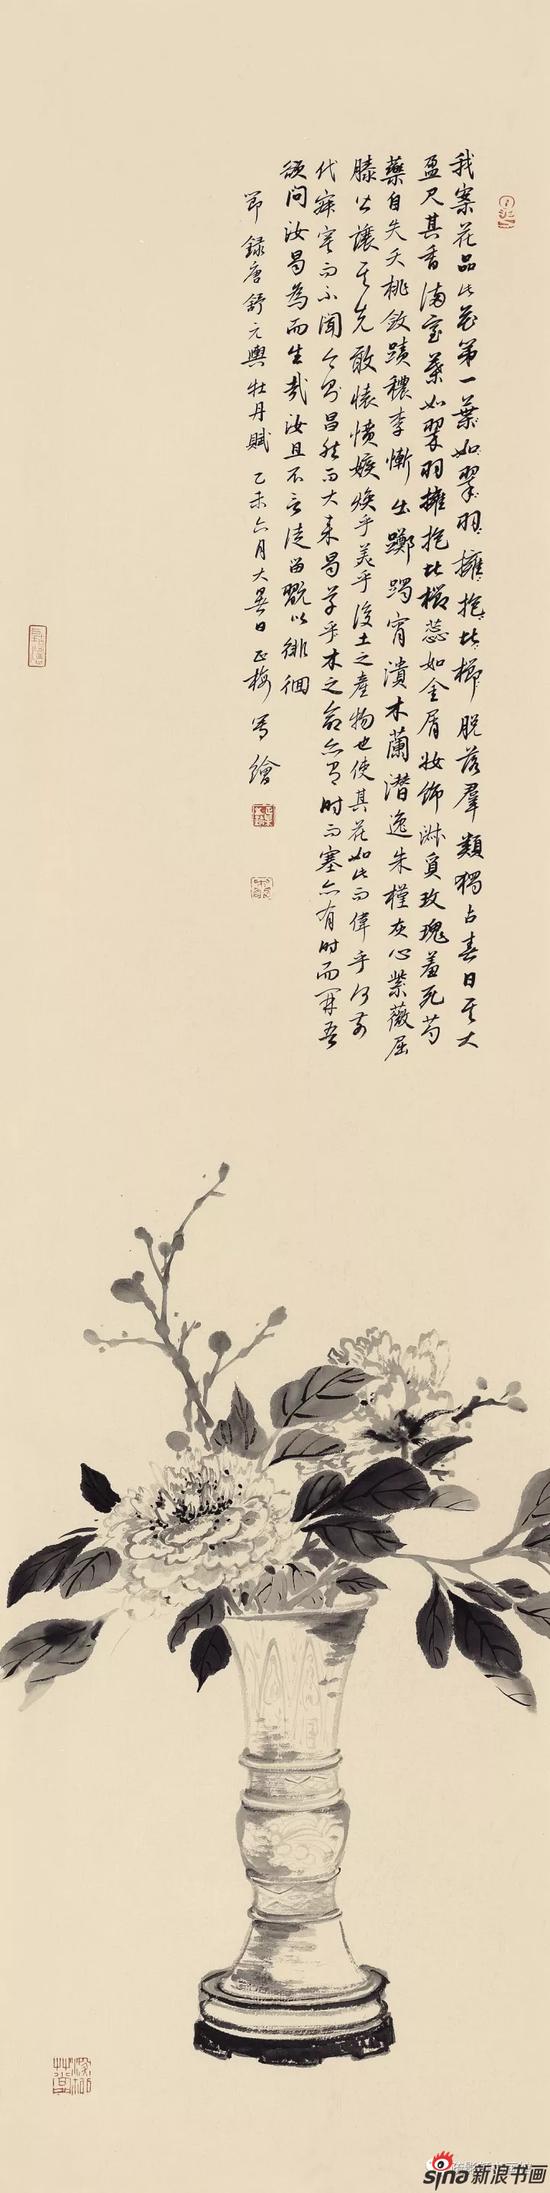 我案花品此花第一葉如翠羽擁抱比櫛脫落羣類獨占春日其大
盈尺其香滿室葉如翠羽擁抱比櫛蕊如金屑妝飾淑質玫瑰羞死芍
藥自失夭桃斂蹟穠李慚出躑躅宵潰木蘭潛逸朱槿灰心紫薇屈
膝皆讓其先敢懷憤嫉煥乎美乎後土之產物也使其花如此而偉乎何前
代寂寞而不聞今則昌然而大来曷草乎木之命亦有時而塞亦有時而開吾
欲問汝曷為而生哉汝且不言徒留翫以徘徊
節錄唐舒元輿牡丹賦 乙未六月大暑日 正梅寫繪
sina新浪书画